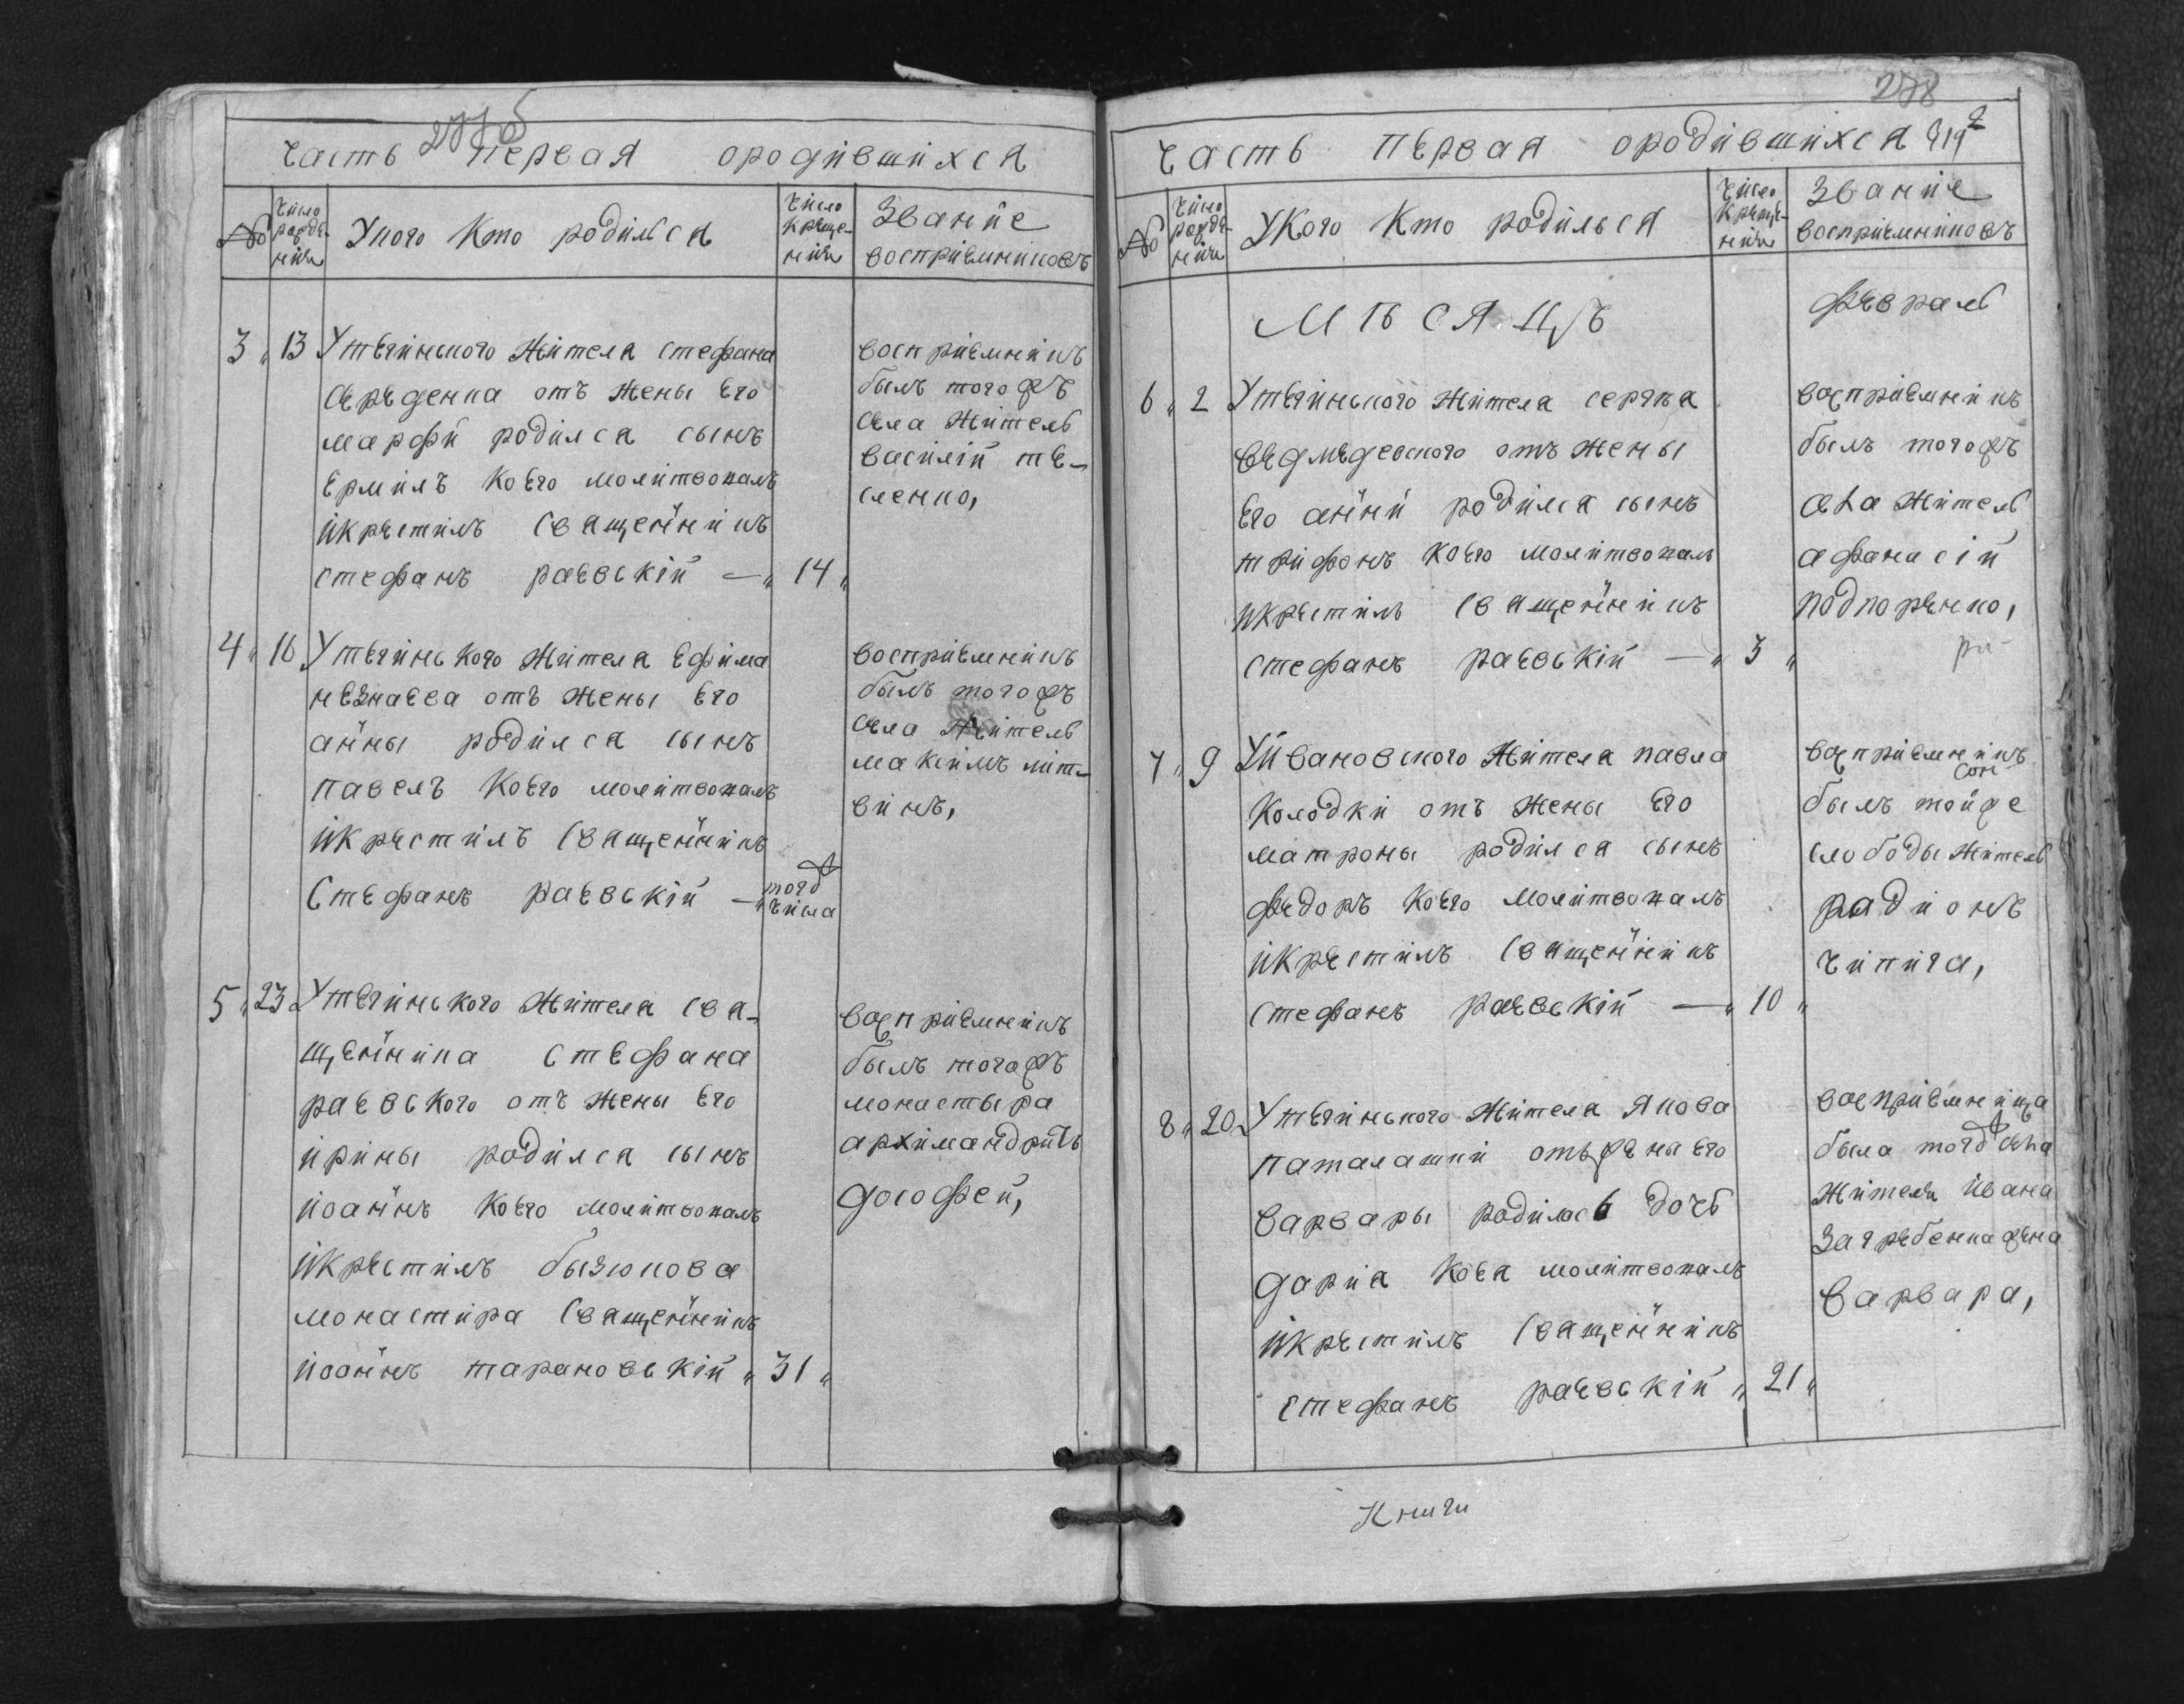 277об
часть первая ородившихся
№
число рожде-
нія
Укого кто родился
число
креще-
нія
Званіе
воспріемниковъ
3 13 Утегинского жителя стефана
середенка отъ жены его
марфи родился сынъ
ермилъ коего молитвовалъ
икрестилъ священникъ
стефанъ раевскій — 14
воспріемникъ
былъ тогожъ
села житель
василій те-
сленко,
4 16 Утегинского жителя ефима
незнаева отъ жены его
анны родился сынъ
павелъ коего молитвовалъ
икрестилъ священникъ
стефанъ раевскій — тогож
числа
воспріемникъ
былъ тогожъ
села житель
максимъ лит-
винъ,
5 23 Утегинского жителя свя-
щенника стефана
раевского отъ жены его
ирины родился сынъ
иоаннъ коего молитвовалъ
икрестилъ бизюкова
монастира священникъ
иоаннъ тарановскій 31
воспріемникъ
былъ тогожъ
монастыра
архимандритъ
дософей,
278
часть первая ородившихся 819 г
№
число
рожде-
нія
Укого кто родился
число
креще-
нія
Званіе
воспріемниковъ
мѣсяцъ февраль
6 2 Утегинского жителя сергѣа
ведмедевского отъ жены
его анни родился сынъ
трифонъ коего молитвовалъ
икрестилъ священникъ
стефанъ раевскій — 3
воспріемникъ
былъ тогожъ
села житель
афанасій
подпоренко,
7 9 Уивановского жителя павла
колодки отъ жены его
матроны родился сынъ
федоръ коего молитвовалъ
икрестилъ священникъ
стефанъ раевскій — 10
воспріемникъ
былъ тойже
слободы житель
радионъ
чипига,
8 20 Утегинского жителя якова
паталашки отъ жены его
варвары родилась дочь
дария коея молитвовалъ
икрестилъ священникъ
стефанъ раевскій 21
воспріемница
была тогож села
жителя ивана
загребенка жена
варвара,
Книги